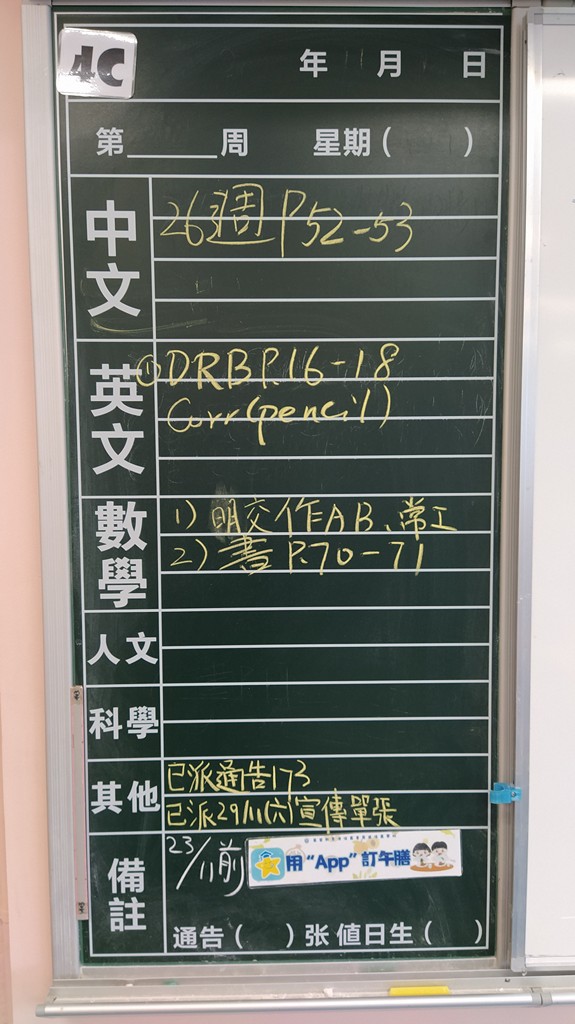 4C
年 月 日
第____周 星期( )
中文
26週 P52-53
英文
① DRB P.16-18
Corr(pencil)
數學
1) 明交作AB、常工
2) 書 P.70-71
人文
科學
其他
已派通告173
已派29/11(六)宣傳單張
備註
23/11前
用“App”訂午膳
通告( )张 值日生( )